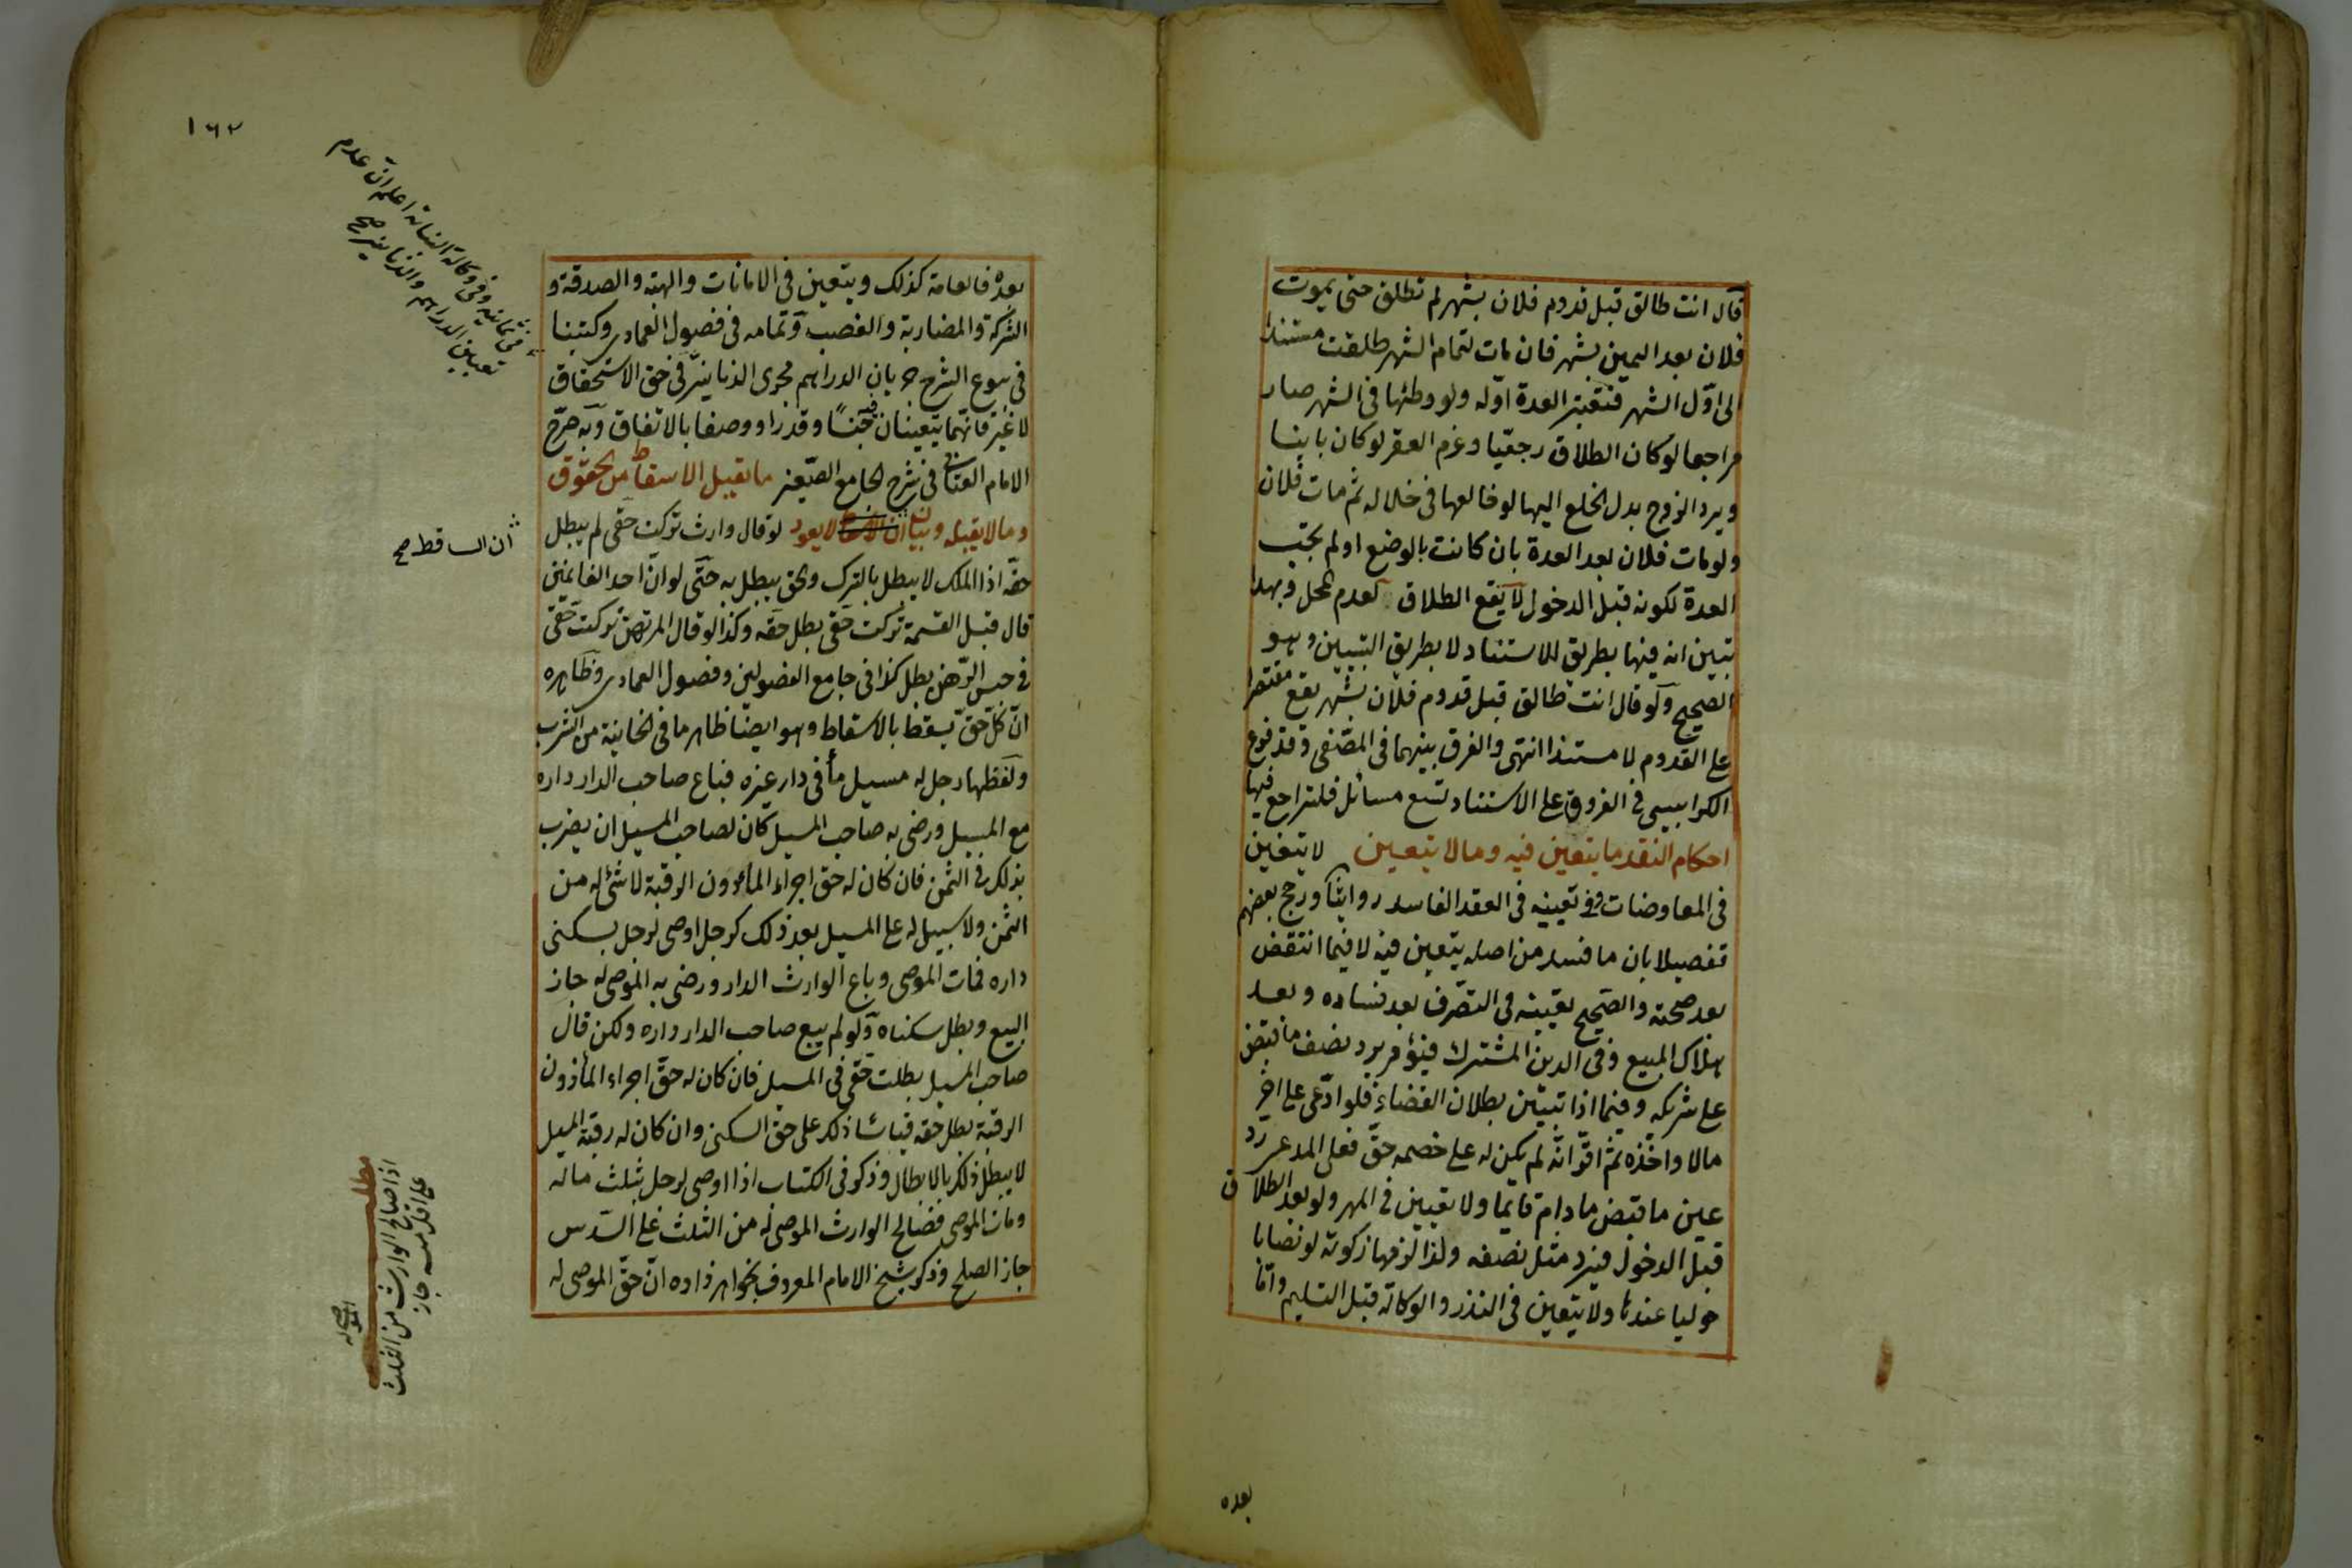 قال انت طالق قبل قدوم فلان بشهر لم تطلق حتى يموت
فلان بعد اليمين بشهر فان مات لتمام الشهر طلقت مستندا
الى اوّل الشهر فتعتبر العدة اوّله ولو وطئها فى الشهر صار
مراجعا لو كان الطلاق رجعيّا وغرم العقر لو كان باينا
ويرد الزوج بدل الخلع اليها لو خالعها فى خلاله ثم مات فلان
ولو مات فلان بعد العدة بان كانت بالوضع او لم تجب
العدة لكونه قبل الدخول لا يقع الطلاق لعدم المحل وبهذا
تبين انه فيها بطريق الاستناد لا بطريق التبيين وهو
الصحيح ولو قال انت طالق قبل قدوم فلان بشهر يقع مقتصرا
على القدوم لا مستندا انتهى والفرق بينهما فى المصفى وقد فرع
الكرابيسى فى الفروق على الاستناد تسع مسائل فلتراجع فيها
احكام النقد ما يتعين فيه وما لا يتعين لا يتعين
فى المعاوضات وفى تعيينه فى العقد الفاسد روايتا ورجح بعضهم
تفصيلا بان ما فسد من اصله يتعين فيه لا فيما انتقض
بعد صحته والصحيح تعيينه فى التصّرف بعد فساده وبعد
هلاك المبيع وفى الدين المشترك فيؤمر برد نصف ما قبض
على شريكه وفيما اذا تبيّن بطلان القضاء فلو ادّعى على اخر
مالا واخذه ثم اقرّ انّه لم يكن له على خصمه حقّ فعلى المدعى رد
عين ما قبض ما دام قايما ولا يتعيين فى المهر ولو بعد الطلاق
قبل الدخول فيرد مثل نصفه ولذا لزمها زكوته لو نصابا
حوليا عندها ولا يتعين فى النذر والوكالة قبل التسليم وامّا
بعده
١٦٢
بعده فالعامة كذلك ويتعين فى الامانات والهبة والصدقة و
الشركة والمضاربة والغصب وتمامه فى فصول العمادى وكتبنا
فى بيوع الشرح جريان الدراهم مجرى الدنانير فى حق الاستحقاق
لا غير فانّهما يتعينان جنسًا وقدرا ووصفا بالاتفاق وبه صرّح
الامام العتابى فى شرح الجامع الصّغير ما يقبل الاسقاط من الحقوق
وما لا يقبله وبيان ان لا يعود لو قال وارث تركت حقى لم يبطل
حقّه اذا الملك لا يبطل بالترك والحق يبطل به حتّى لو انّ احد الغانمين
قال قبل القسمة تركت حقى بطل حقه وكذا لو قال المرتهن تركت حقى
فى حبس الرّهن بطل كذا فى جامع الفصولين وفصول العمادى وظاهره
انّ كلّ حقّ يسقط بالاسقاط وهو ايضا ظاهر ما فى الخانية من الشرب
ولفظها رجل له مسيل ماء فى دار غيره فباع صاحب الدار داره
مع المسيل ورضى به صاحب المسيل كان لصاحب المسيل ان يضرب
بذلك فى الثمن فان كان له حق اجراء الماء دون الرقبة لا شئ له من
الثمن ولا سبيل له على المسيل بعد ذلك كرجل اوصى لرجل بسكنى
داره فمات الموصى وباع الوارث الدار ورضى به الموصى له جاز
البيع وبطل سكناه ولو لم يبع صاحب الدار داره ولكن قال
صاحب المسيل بطلت حقى فى المسيل فان كان له حقّ اجراء الماء دون
الرقبة بطل حقه قياسا ذلك على حق السكنى وان كان له رقبة المسيل
لا يبطل ذلك بالابطال وذكر فى الكتاب اذا اوصى لرجل بثلث ماله
ومات الموصى فصالح الوارث الموصى له من الثلث على السّدس
جاز الصلح وذكر شيخ الامام المعروف بخواهر زاده انّ حقّ الموصى له
وفى وكالة النهاية اعلم انّ عدم
تعيين الدراهم والدنانير صح
ان الساقط صح
مطلب
اذا صالح الوارث من الثلث
على اقل منه جاز
الموصى له